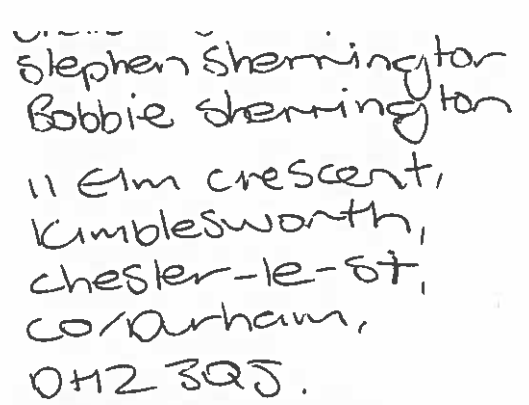 Stephen Sherrington
Bobbie Sherrington
11 Elm Crescent,
Kimblesworth,
Chester-le-St,
CO/Durham,
DH2 3QJ.